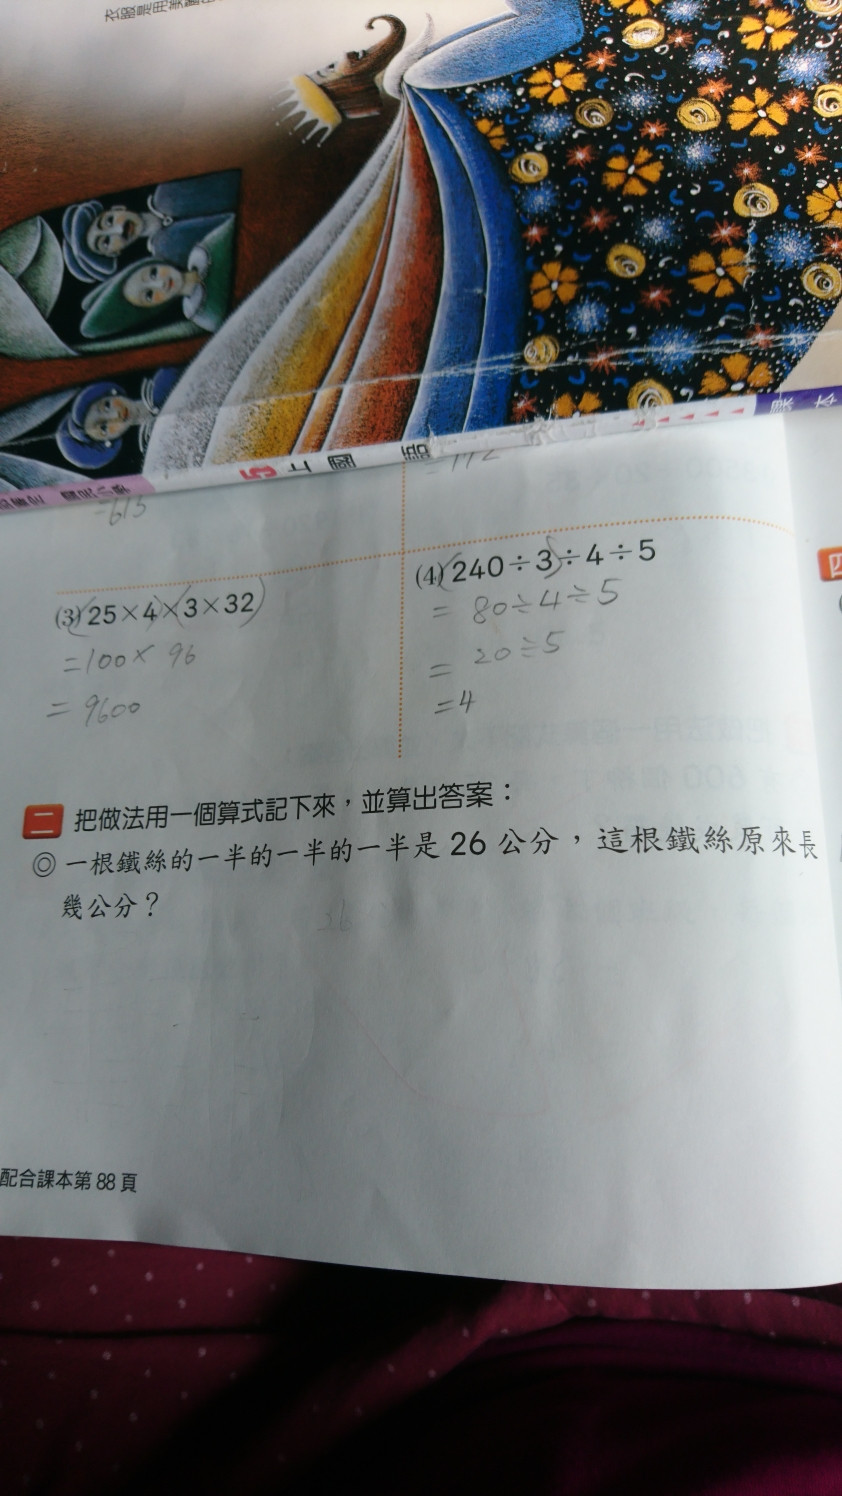 衣服是用美麗
5上 國語 課本
國民小學
=615
=112
(3) 25×4×3×32
=100×96
=9600
(4) 240÷3÷4÷5
= 80÷4÷5
= 20÷5
=4
二 把做法用一個算式記下來，並算出答案：
◎ 一根鐵絲的一半的一半的一半是 26 公分，這根鐵絲原來長
幾公分？
26
四
配合課本第 88 頁